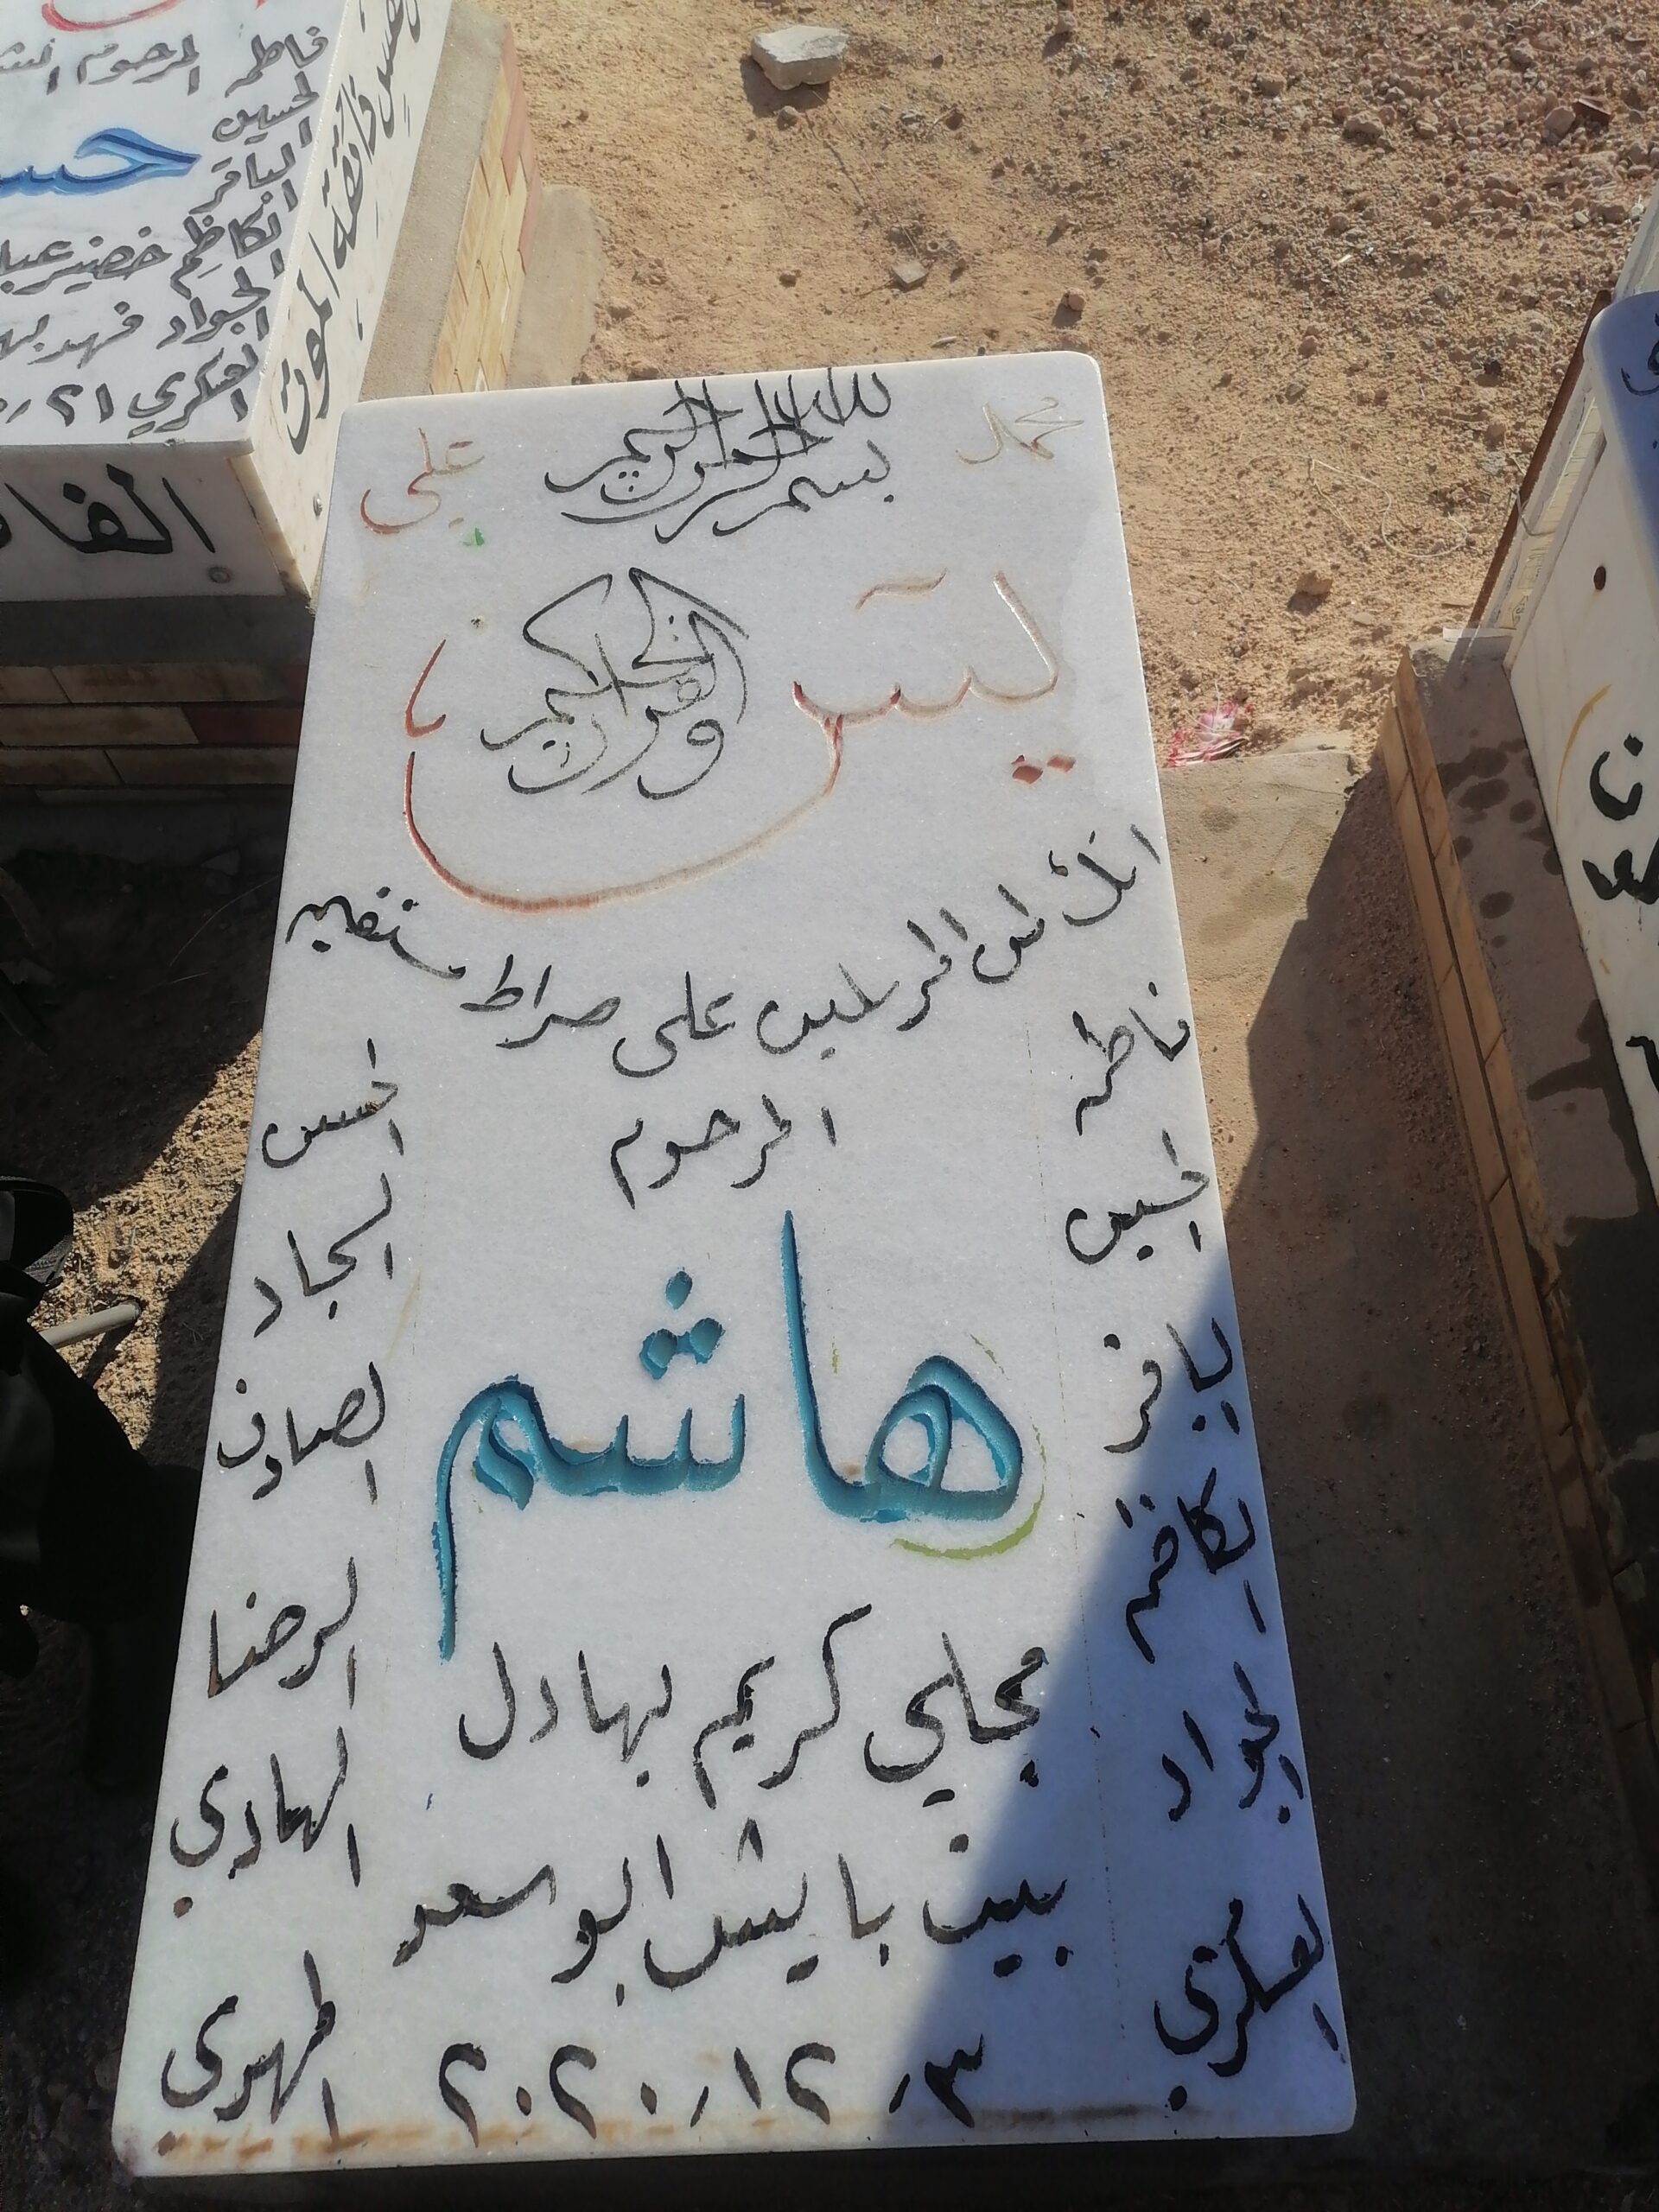 فاطمه المرحوم
الحسين
الباقر
الكاظم خضير
الجواد فهد
العسكري ٢١
ذائقة الموت
محمد
بسم الله الرحمن الرحيم
علي
يس
والقرآن الحكيم
انك لمن المرسلين على صراط مستقيم
المرحوم
هاشم
مجلي كريم بهادل
بيت بايش البو سعد
٣/١٢/٢٠٢٠
فاطمه
الحسين
الباقر
الكاظم
الجواد
العسكري
الحسن
السجاد
الصادق
الرضا
الهادي
المهدي